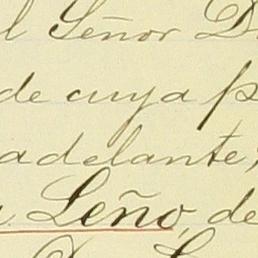 l Señor D
de cuya p
adelante;
Leño, de